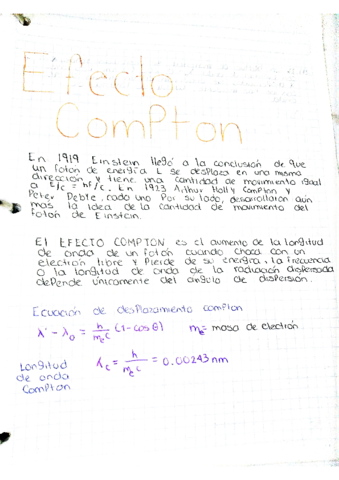 Efecto
Compton
En 1919 Einstein llegó a la conclusión de que
un foton de energía E se desplaza en una misma
dirección y tiene una cantidad de movimiento igual
a E/c = hf/c. En 1923 Arthur Holly Compton y
Peter Debte, cada uno Por su lado, desarrollaron aún
mas la idea de la cantidad de movimiento del
Foton de Einstein.
El EFECTO COMPTON es el aumento de la longitud
de onda de un foton cuando choca con un
electrón libre y Pierde de su energía, la frecuencia
o la longitud de onda de la radiación dispersada
depende únicamente del angulo de dispersión.
Ecuación de desplazamiento compton
λ' - λ₀ = h/mₑc (1-cos θ) mₑ= masa de electrón
Longitud
de onda
Compton
λc = h/mₑc = 0.00243 nm